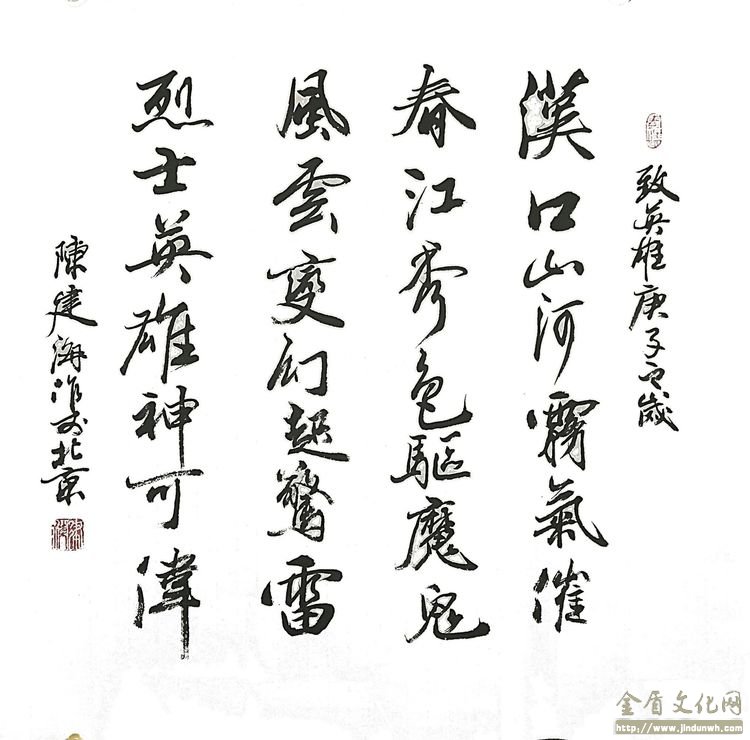 致英雄庚子之歲
漢口山河霧氣催
春江秀色驅魔鬼
風雲變幻起驚雷
烈士英雄神可偉
陳建海作於北京
金盾文化网
http://www.jindunwh.com